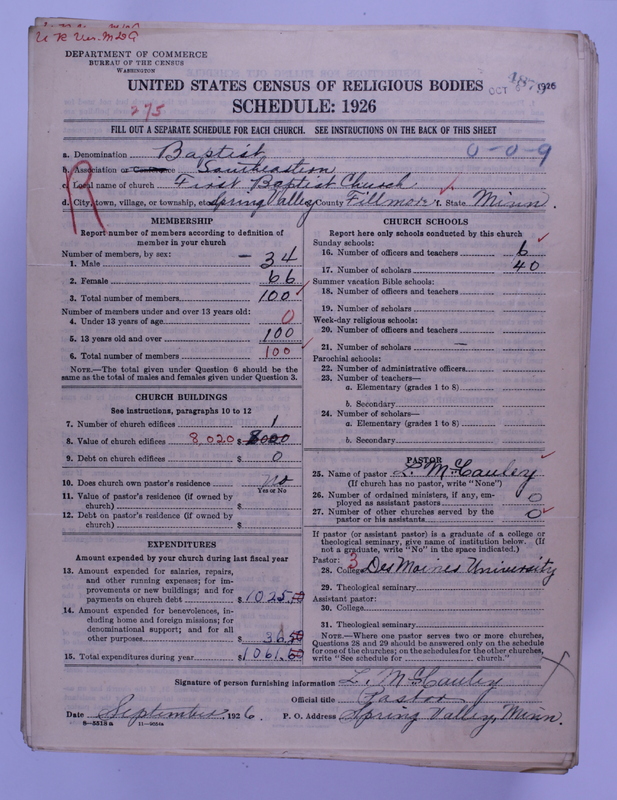 DEPARTMENT OF COMMERCE
BUREAU OF THE CENSUS
WASHINGTON
UNITED STATES CENSUS OF RELIGIOUS BODIES
OCT 1926
275
SCHEDULE: 1926
FILL OUT A SEPARATE SCHEDULE FOR EACH CHURCH. SEE INSTRUCTIONS ON THE BACK OF THIS SHEET
a. Denomination Baptist 0-0-9
b. Association or Conference Southeastern
c. Local name of church First Baptist Church
d. City, town, village, or township, etc. Spring Valley County Fillmore State Minn.
MEMBERSHIP
Report number of members according to definition of
member in your church
Number of members, by sex:
1. Male 34
2. Female 66
3. Total number of members 100
Number of members under and over 13 years old:
4. Under 13 years of age 0
5. 13 years old and over 100
6. Total number of members 100
NOTE.—The total given under Question 6 should be the
same as the total of males and females given under Question 3.
CHURCH BUILDINGS
See instructions, paragraphs 10 to 12
7. Number of church edifices 1
8. Value of church edifices 8,020 $
9. Debt on church edifices $ 0
10. Does church own pastor's residence no
Yes or No
11. Value of pastor's residence (if owned by
church) $
12. Debt on pastor's residence (if owned by
church) $
EXPENDITURES
Amount expended by your church during last fiscal year
13. Amount expended for salaries, repairs,
and other running expenses; for im-
provements or new buildings; and for
payments on church debt $ 1025.50
14. Amount expended for benevolences, in-
cluding home and foreign missions; for
denominational support; and for all
other purposes $ 36.50
15. Total expenditures during year $ 1061.60
CHURCH SCHOOLS
Report here only schools conducted by this church
Sunday schools:
16. Number of officers and teachers 6
17. Number of scholars 40
Summer vacation Bible schools:
18. Number of officers and teachers
19. Number of scholars
Week-day religious schools:
20. Number of officers and teachers
21. Number of scholars —
Parochial schools:
22. Number of administrative officers
23. Number of teachers—
a. Elementary (grades 1 to 8)
b. Secondary
24. Number of scholars—
a. Elementary (grades 1 to 8)
b. Secondary
PASTOR
25. Name of pastor L. McCauley
(If church has no pastor, write "None")
26. Number of ordained ministers, if any, em-
ployed as assistant pastors 0
27. Number of other churches served by the
pastor or his assistants 0
If pastor (or assistant pastor) is a graduate of a college or
theological seminary, give name of institution below. (If
not a graduate, write "No" in the space indicated.)
Pastor: 3
28. College Des Moines University
29. Theological seminary
Assistant pastor:
30. College
31. Theological seminary
NOTE.—Where one pastor serves two or more churches,
Questions 28 and 29 should be answered only on the schedule
for one of the churches; on the schedules for the other churches,
write "See schedule for church."
Signature of person furnishing information L. McCauley
Official title Pastor
Date September, 1926. P. O. Address Spring Valley, Minn.
8—5518a 11—9054a